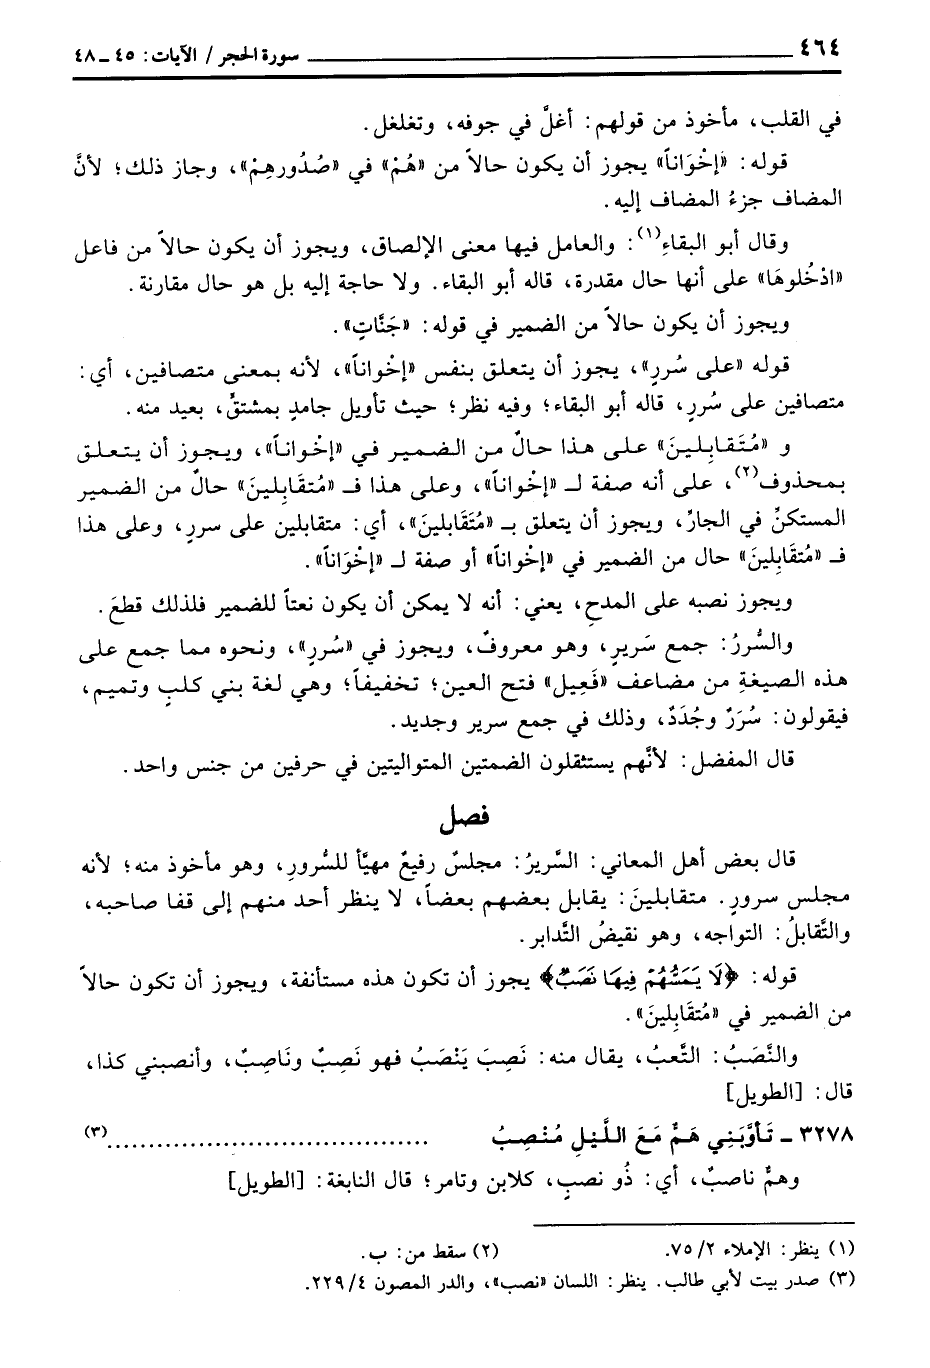 ٤٦٤ سورة الحجر / الآيات: ٤٥ ـ ٤٨
في القلب، مأخوذ من قولهم: أغلَّ في جوفه، وتغلغل.
قوله: «إخْوَاناً» يجوز أن يكون حالاً من «هُمْ» في «صُدُورهِمْ»، وجاز ذلك؛ لأنَّ
المضاف جزءُ المضاف إليه.
وقال أبو البقاءِ(١): والعامل فيها معنى الإلصاق، ويجوز أن يكون حالاً من فاعل
«ادْخُلوهَا» على أنها حال مقدرة، قاله أبو البقاء. ولا حاجة إليه بل هو حال مقارنة.
ويجوز أن يكون حالاً من الضمير في قوله: «جَنَّاتٍ».
قوله «على سُررٍ»، يجوز أن يتعلق بنفس «إخْواناً»، لأنه بمعنى متصافين، أي:
متصافين على سُررٍ، قاله أبو البقاء؛ وفيه نظر؛ حيث تأويل جامدٍ بمشتقٍّ، بعيد منه.
و «مُتَقابِلينَ» على هذا حالٌ من الضمير في «إخْواناً»، ويجوز أن يتعلق
بمحذوف(٢)، على أنه صفة لـ «إخْواناً»، وعلى هذا فـ «مُتقَابِلينَ» حالٌ من الضمير
المستكنِّ في الجارِّ، ويجوز أن يتعلق بـ «مُتَقَابلينَ»، أي: متقابلين على سررٍ، وعلى هذا
فـ «مُتقَابِلينَ» حال من الضمير في «إخْواناً» أو صفة لـ «إخْوَاناً».
ويجوز نصبه على المدحِ، يعني: أنه لا يمكن أن يكون نعتاً للضمير فلذلك قطعَ.
والسُّررُ: جمع سَريرٍ، وهو معروفٌ، ويجوز في «سُررٍ»، ونحوه مما جمع على
هذه الصيغةِ من مضاعف «فَعِيل» فتح العين؛ تخفيفاً؛ وهي لغة بني كلبٍ وتميم،
فيقولون: سُرَرٌ وجُدَدٌ، وذلك في جمع سرير وجديد.
قال المفضل: لأنَّهم يستثقلون الضمتين المتواليتين في حرفين من جنس واحد.
فصل
قال بعض أهل المعاني: السَّريرُ: مجلسٌ رفيعٌ مهيَّأ للسُّرورِ، وهو مأخوذ منه؛ لأنه
مجلس سرورٍ. متقابلينَ: يقابل بعضهم بعضاً، لا ينظر أحد منهم إلى قفا صاحبه،
والتَّقابلُ: التواجه، وهو نقيضُ التَّدابر.
قوله: ﴿لَا يَمَسُّهُمْ فِيهَا نَصَبٌ﴾ يجوز أن تكون هذه مستأنفة، ويجوز أن تكون حالاً
من الضمير في «مُتقَابِلينَ».
والنَّصَبُ: التَّعبُ، يقال منه: نَصِبَ يَنْصَبُ فهو نَصِبٌ ونَاصِبٌ، وأنصبني كذا،
قال: [الطويل]
٣٢٧٨ ـ تَأوَّبَنِي هَمٌّ مَعَ اللَّيْلِ مُنْصِبُ .......................................(٣)
وهمٌّ ناصبٌ، أي: ذُو نصبٍ، كلابن وتامر؛ قال النابغة: [الطويل]
(١) ينظر: الإملاء ٢/ ٧٥. (٢) سقط من: ب.
(٣) صدر بيت لأبي طالب. ينظر: اللسان «نصب»، والدر المصون ٤/ ٢٢٩.